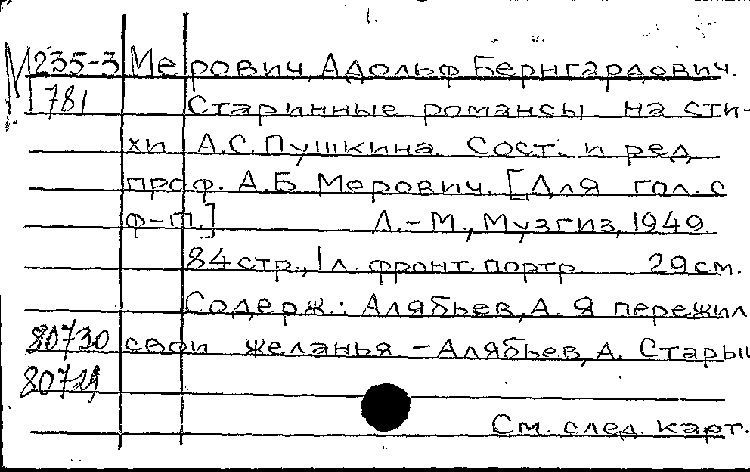 1.
М 235-3 Мерович, Адольф Бернгардович.
781 Старинные романсы на сти-
хи А.С. Пушкина. Сост. и ред
проф. А.Б. Мерович. [Для гол. с
ф-п.] Л.-М., Музгиз, 1949
84 стр., 1 л. фронт. портр. 29 см.
Содерж.: Алябьев, А. Я пережил
80730 свои желанья - Алябьев, А. Стары
См. след. карт.